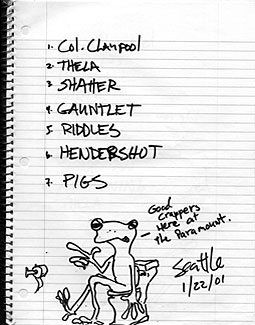 1. Col. Claypool
2. THELA
3. SHATTER
4. GAUNTLET
5. RIDDLES
6. HENDERSHOT
7. PIGS
Good
crappers
Here at
the Paramount.
Seattle
1/22/01